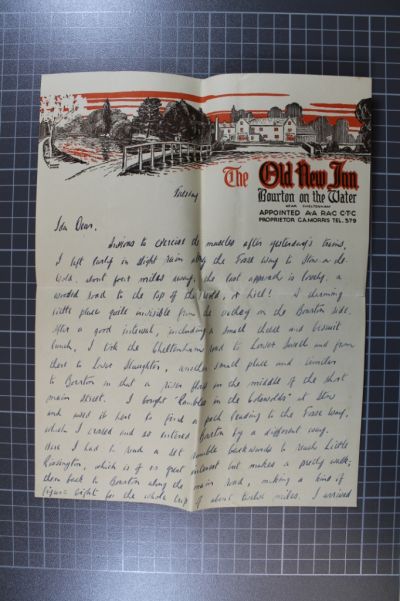 The Old New Inn
Bourton on the Water
NEAR CHELTENHAM
APPOINTED A·A R·A·C C·T·C
PROPRIETOR C.A.MORRIS TEL. 379
Tuesday
Dear,
Anxious to exercise the muscles after yesterday's trains,
I left early in slight rain along the Fosse Way to Stow-on-the-
Wold, about four miles away; the last approach is lovely, a
wooded road to the top of the wold, or hill! A charming
little place quite invisible from the valley on the Bourton side.
After a good interval, including a small cheese and biscuit
lunch, I took the Cheltenham road to Lower Swell and from
there to Lower Slaughter, another small place and similar
to Bourton in that a river flows in the middle of the short
main street. I bought "Rambles in the Cotswolds" at Stow
and used it here to find a path leading to the Fosse Way,
which I crossed and so entered Bourton by a different way.
Here I had to read a bit ramble backwards to reach Little
Rissington, which is of no great interest but makes a pretty walk;
then back to Bourton along the main road, making a kind of
figure eight for the whole trip of about twelve miles. I arrived